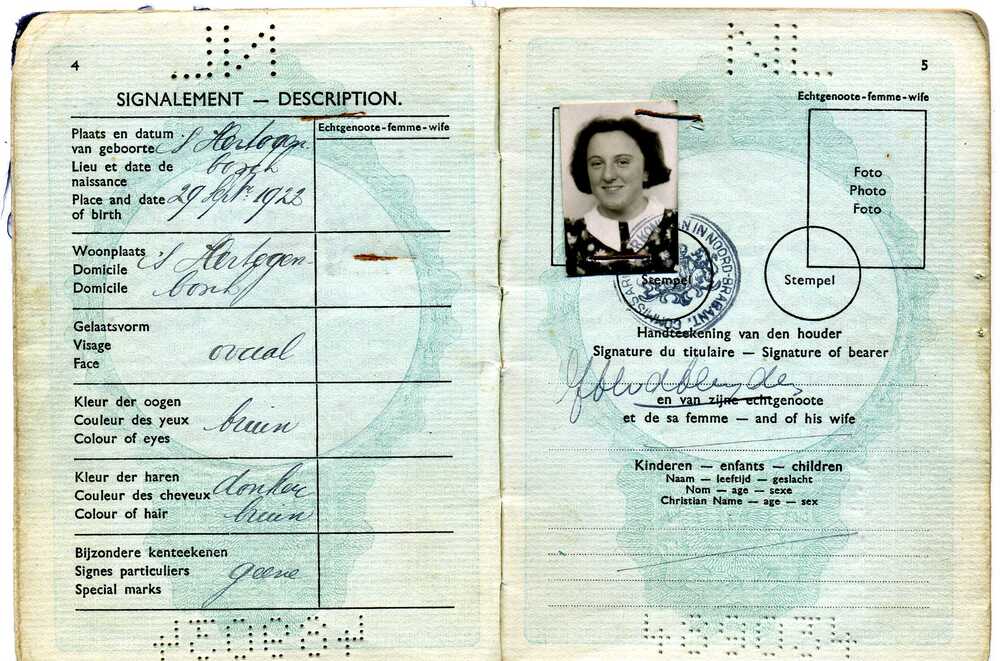 NL
4
SIGNALEMENT — DESCRIPTION.
Echtgenoote-femme-wife
Plaats en datum
van geboorte
Lieu et date de
naissance
Place and date
of birth
's Hertogen-
bosch
29 Sept. 1922
Woonplaats
Domicile
Domicile
's Hertogen-
bosch
Gelaatsvorm
Visage
Face
ovaal
Kleur der oogen
Couleur des yeux
Colour of eyes
bruin
Kleur der haren
Couleur des cheveux
Colour of hair
donker
bruin
Bijzondere kenteekenen
Signes particuliers
Special marks
geene
NL
5
Echtgenoote-femme-wife
Foto
Photo
Foto
Stempel
Stempel
IN NOORD-BRABANT.
Handteekening van den houder
Signature du titulaire — Signature of bearer
en van zijne echtgenoote
et de sa femme — and of his wife
Kinderen — enfants — children
Naam — leeftijd — geslacht
Nom — age — sexe
Christian Name — age — sex